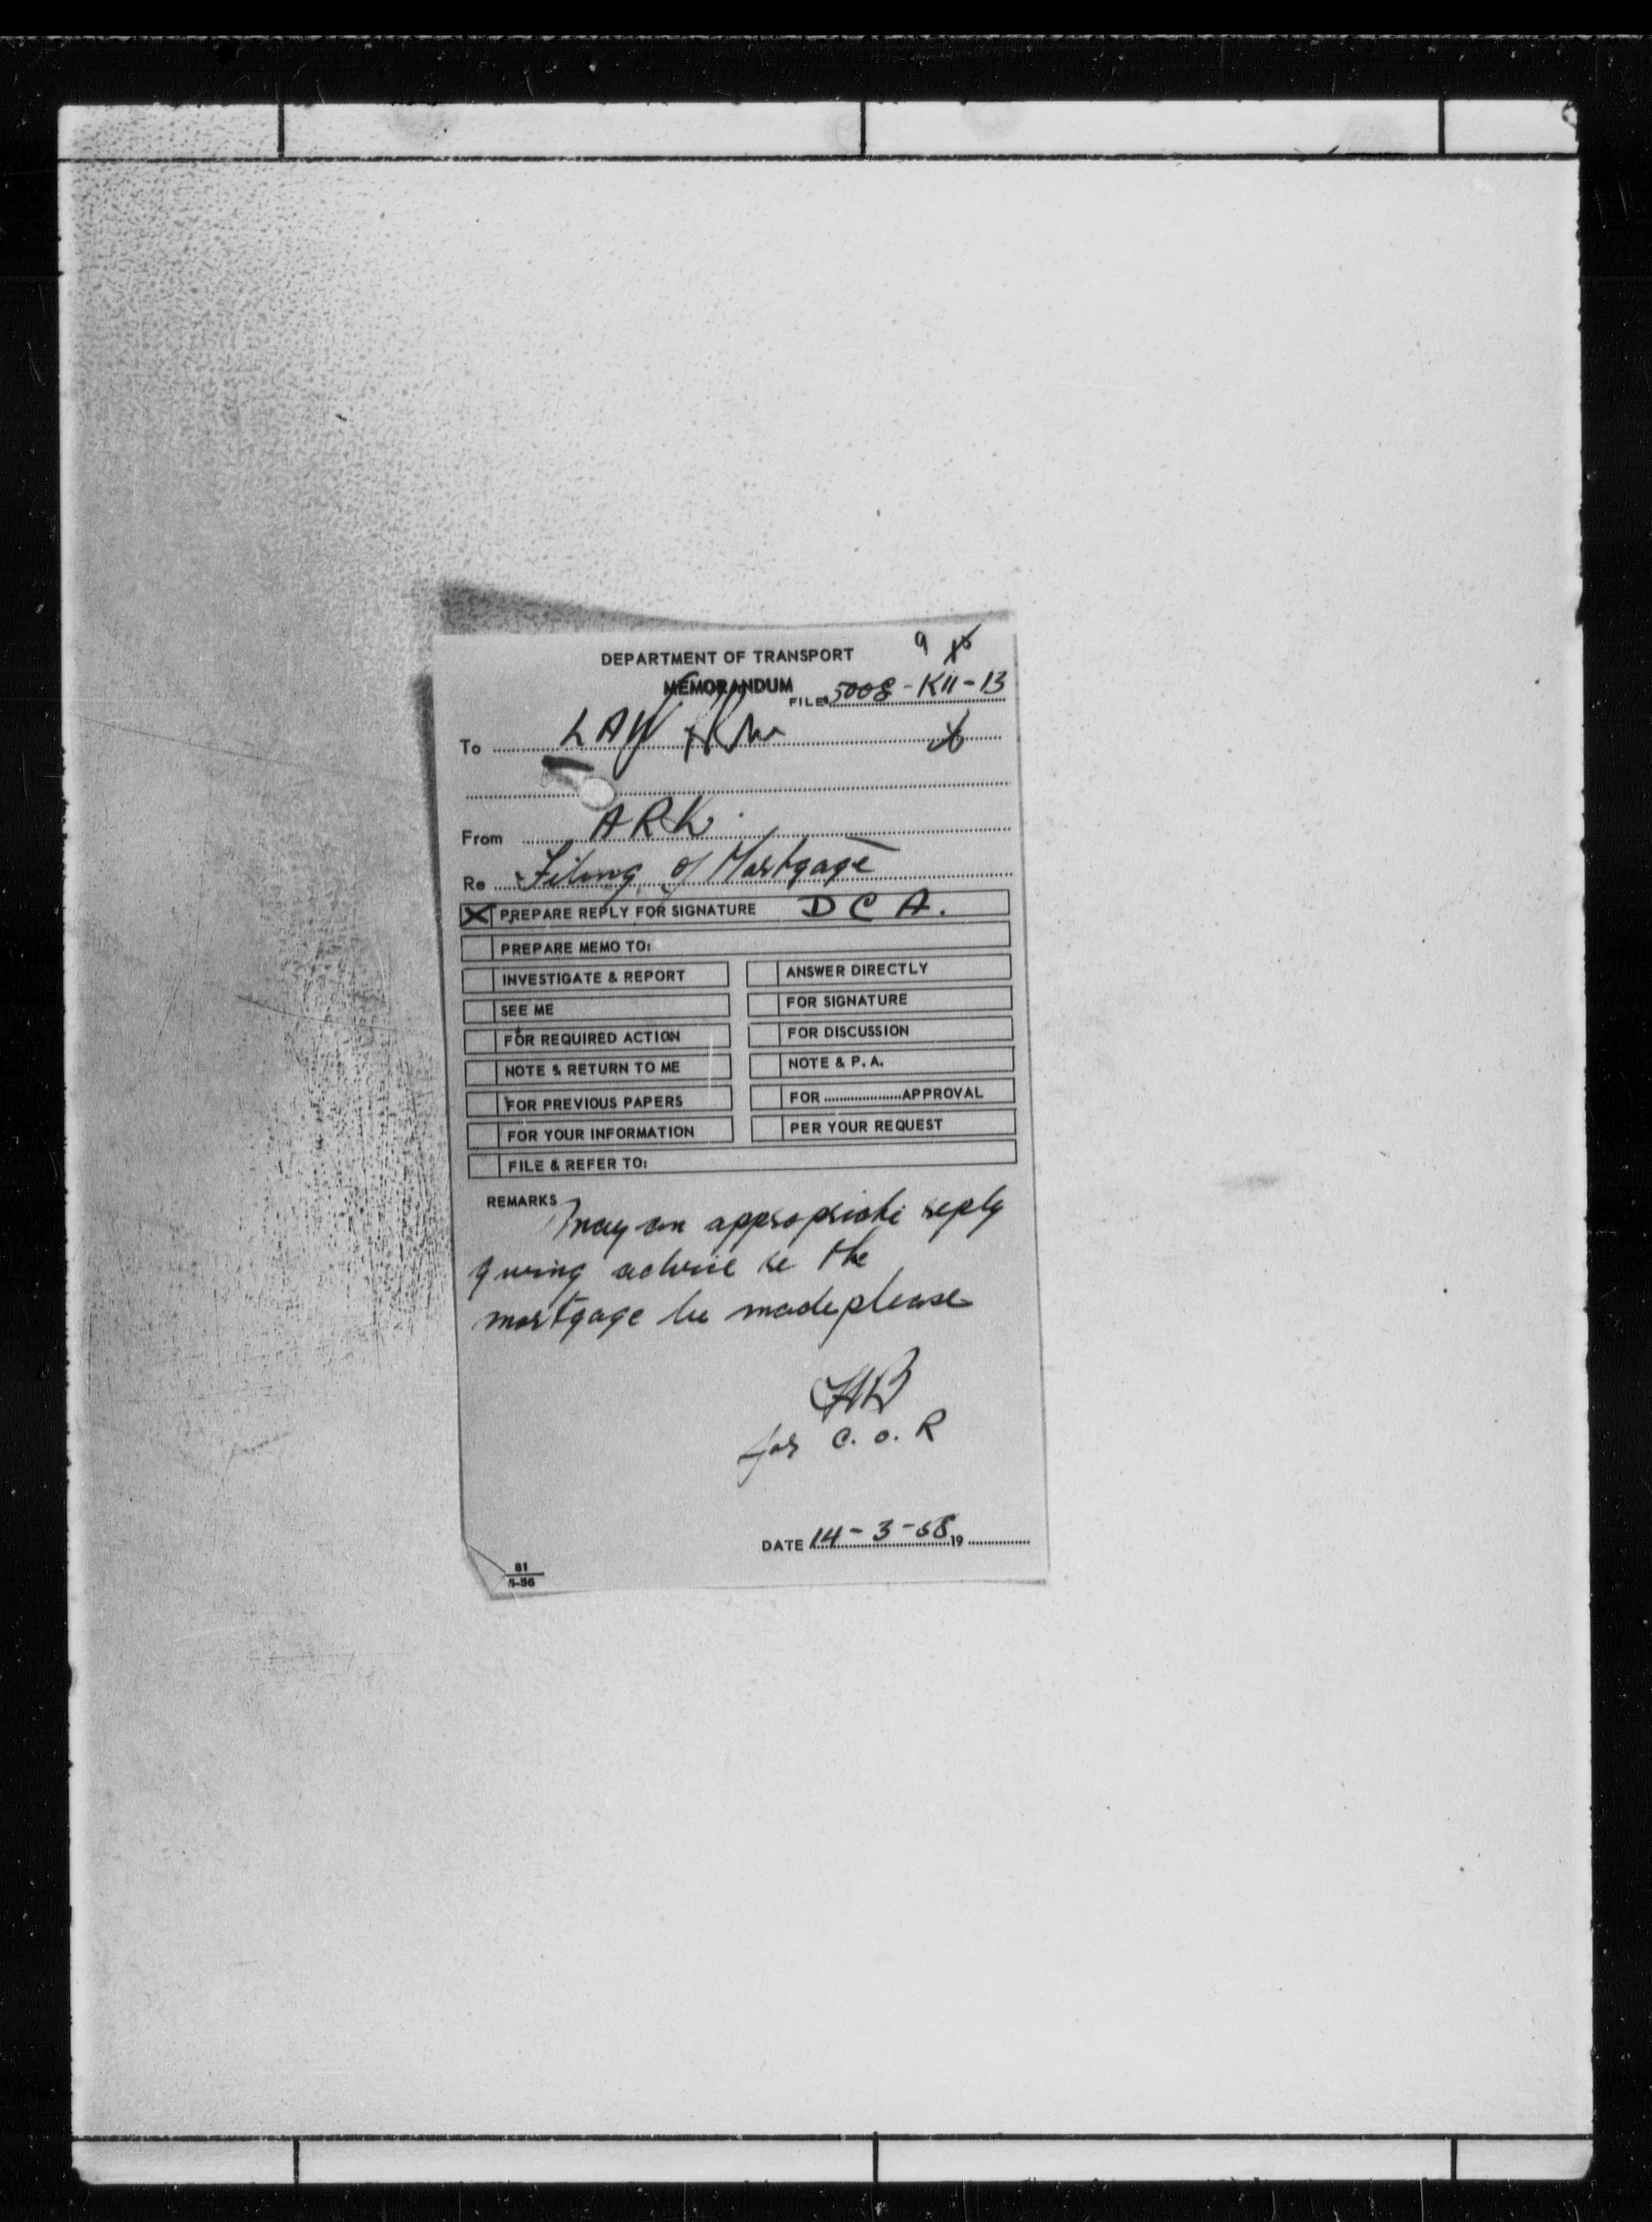 9
DEPARTMENT OF TRANSPORT
MEMORANDUM
FILE 5008-K11-13
To LAW
From ARK
Re Filing of Mortgage
X PREPARE REPLY FOR SIGNATURE D C A.
PREPARE MEMO TO:
INVESTIGATE & REPORT ANSWER DIRECTLY
SEE ME FOR SIGNATURE
FOR REQUIRED ACTION FOR DISCUSSION
NOTE & RETURN TO ME NOTE & P. A.
FOR PREVIOUS PAPERS FOR ........ APPROVAL
FOR YOUR INFORMATION PER YOUR REQUEST
FILE & REFER TO:
REMARKS
May an appropriate reply
giving advice re the
mortgage be made please
for C. O. R
DATE 14-3-58 19
81
5-56